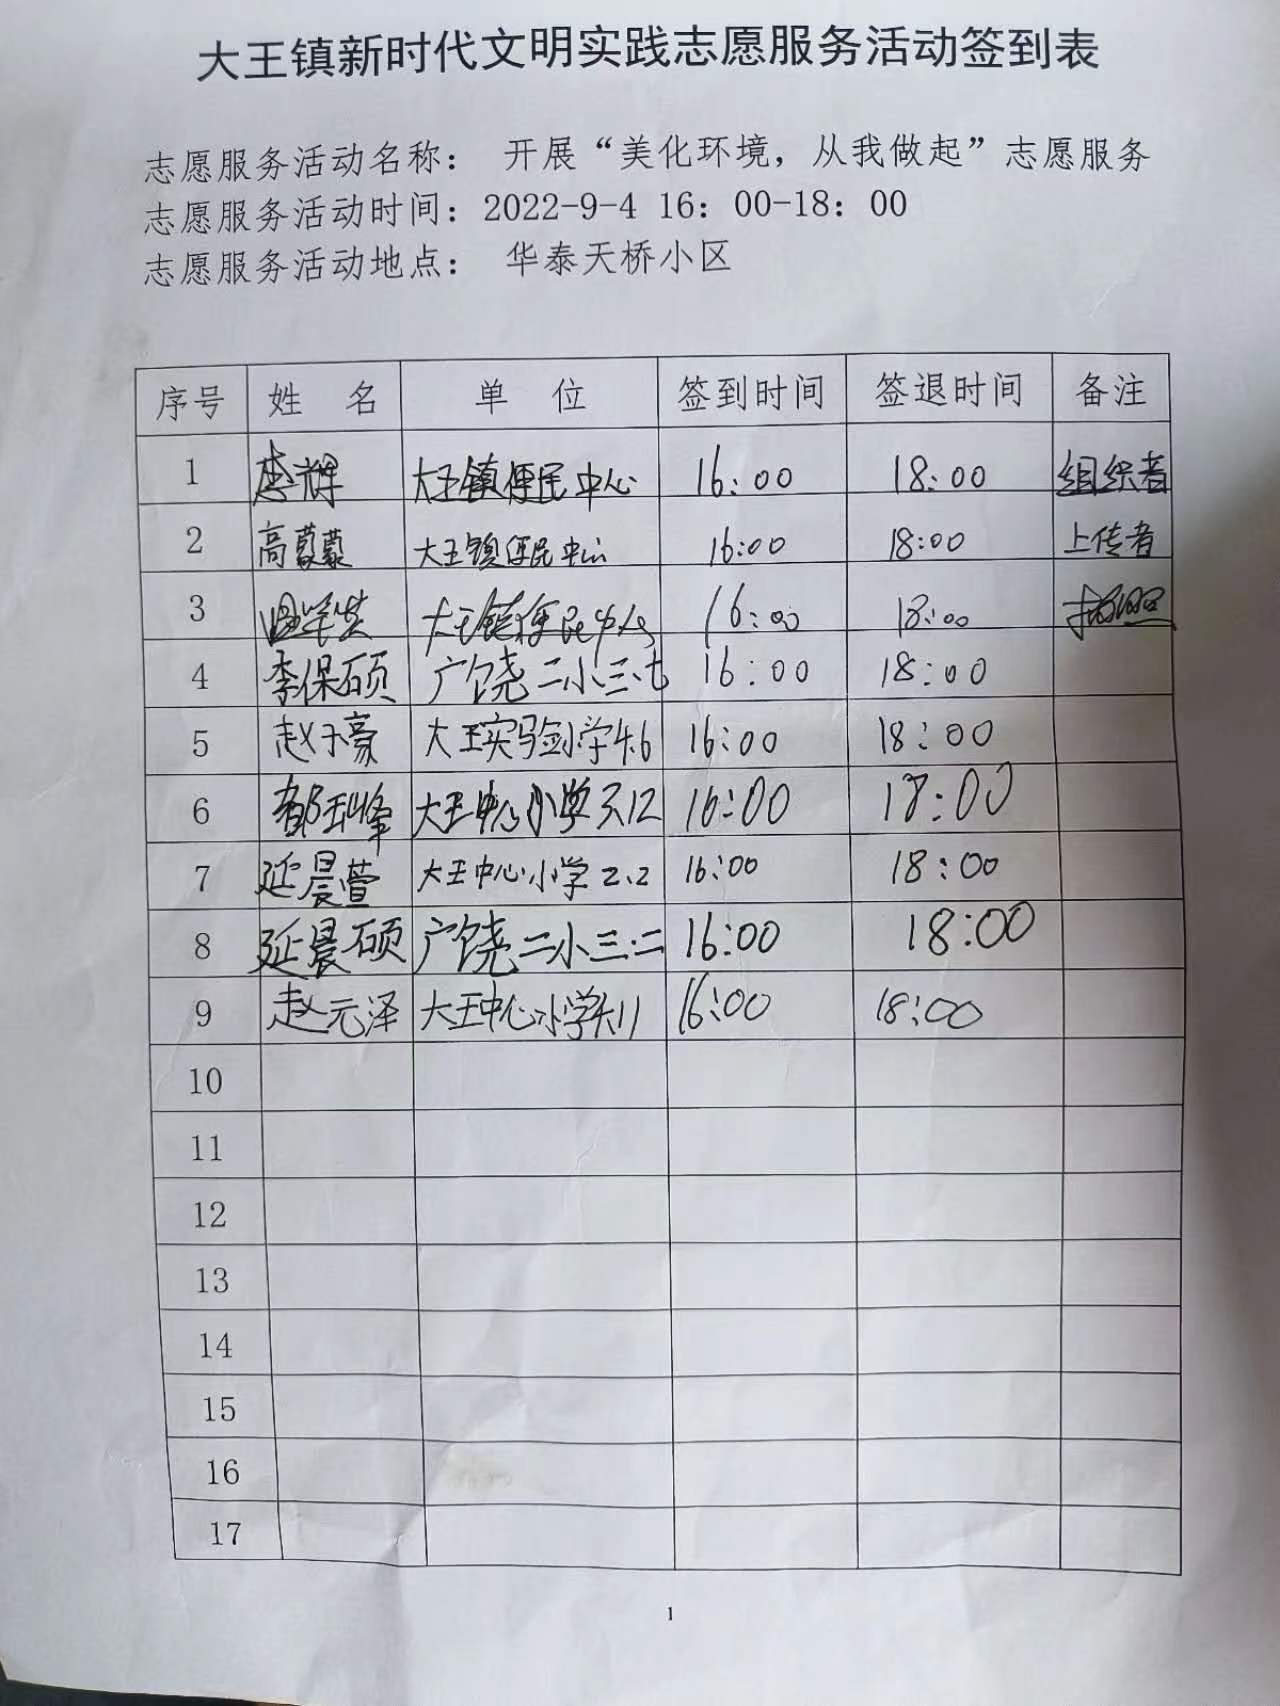 大王镇新时代文明实践志愿服务活动签到表
志愿服务活动名称： 开展“美化环境，从我做起”志愿服务
志愿服务活动时间：2022-9-4 16：00-18：00
志愿服务活动地点： 华泰天桥小区
序号 姓 名 单 位 签到时间 签退时间 备注
1 李辉 大王镇便民中心 16:00 18:00 组织者
2 高蒙蒙 大王镇便民中心 16:00 18:00 上传者
3 大王镇便民中心 16:00 18:00 拍照
4 李保硕 广饶二小三.七 16:00 18:00
5 赵子豪 大王实验小学4.6 16:00 18:00
6 大王中心小学3.12 16:00 18:00
7 延晨萱 大王中心小学2.2 16:00 18:00
8 延晨硕 广饶二小三.二 16:00 18:00
9 赵元泽 大王中心小学 16:00 18:00
10
11
12
13
14
15
16
17
1